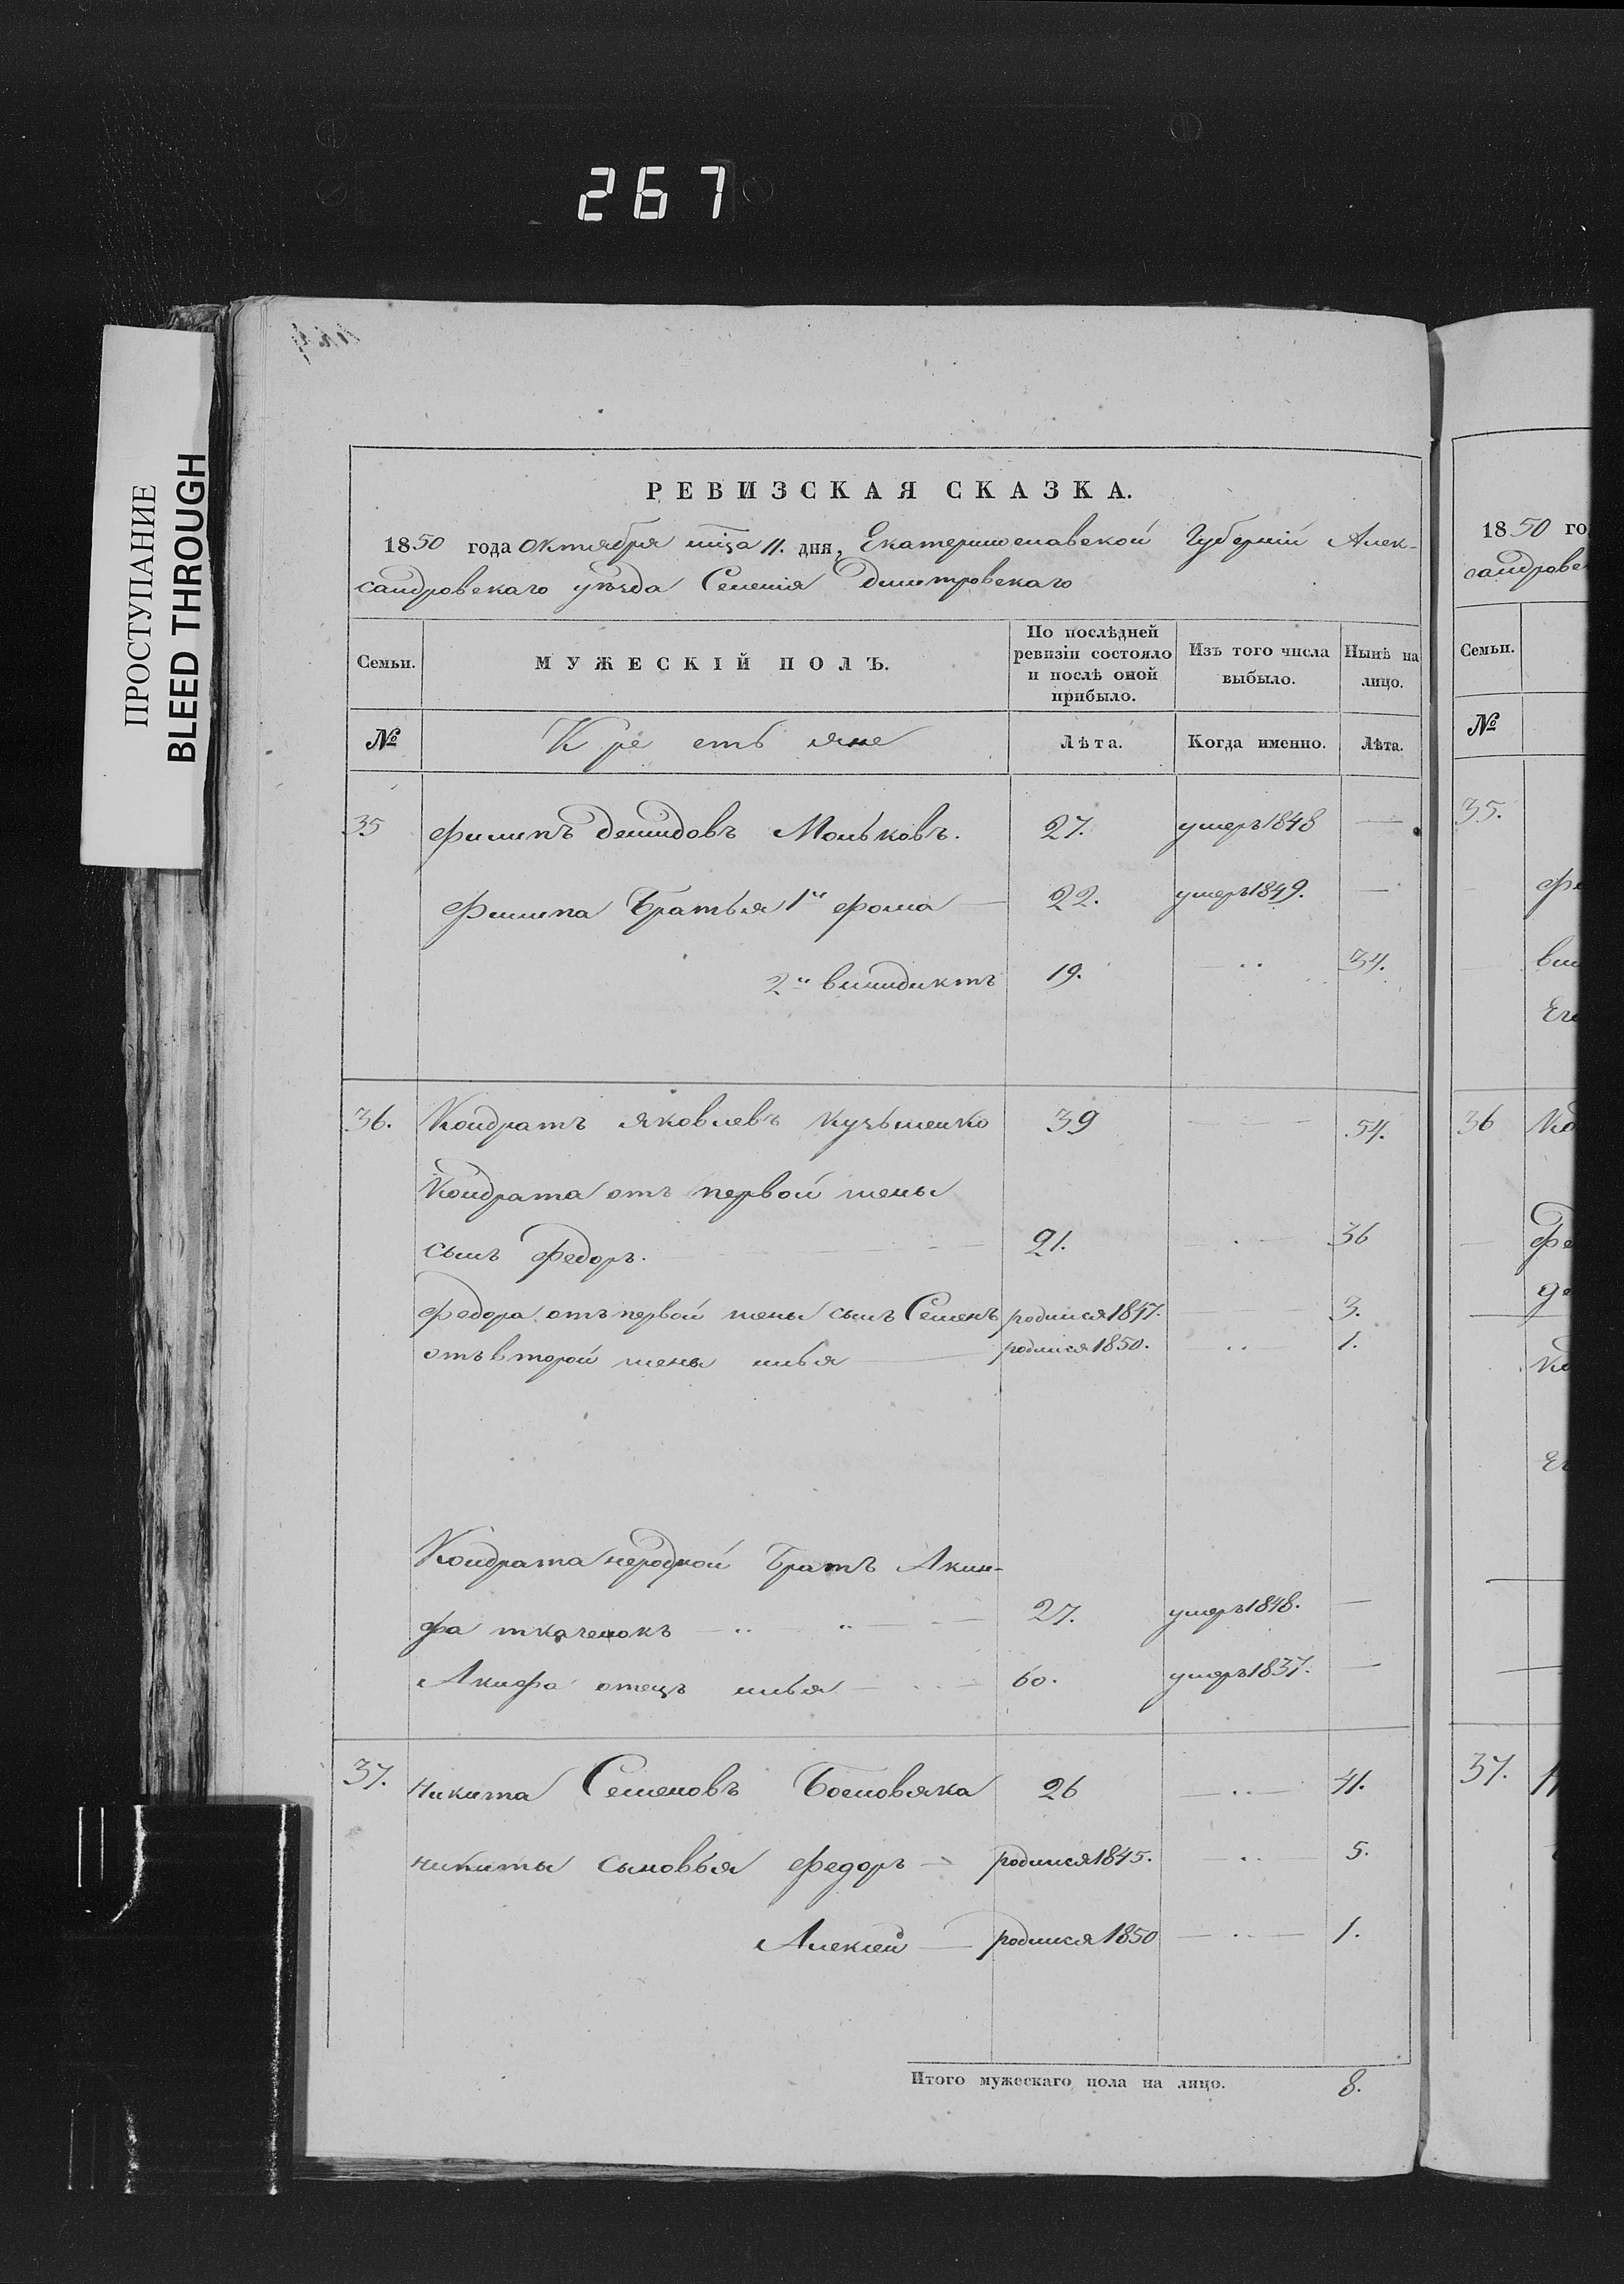 267
ПРОСТУПАНИЕ
BLEED THROUGH
РЕВИЗСКАЯ СКАЗКА.
1850 года Октября мца 11. дня, Екатеринославской Губерніи Алек-
сандровскаго уѣзда Селенія Дмитровскаго
Семьи. МУЖЕСКІЙ ПОЛЪ. По послѣдней ревизіи состояло и послѣ оной прибыло. Изъ того числа выбыло. Нынѣ на лицо.
№ Крестьяне Лѣта. Когда именно. Лѣта.
35 Филипъ Демидовъ 27. умеръ 1848 —
Филипа Братья 1й Фома — 22. умеръ 1849. —
2й Винидиктъ 19. 34.
36. Кондратъ Яковлевъ Кузьменко 39 54.
Кондрата отъ первой жены
сынъ Федоръ. 21. 36
Федора отъ первой жены сынъ Семенъ родился 1847. 3.
отъ второй жены Илья родился 1850. 1.
Кондрата неродной Братъ Акин-
фа Ткаченокъ 27. умеръ 1848. —
Акинфа отецъ Илья 60. умеръ 1837. —
37. Никита Семеновъ 26 41.
Никиты сыновья Федоръ — родился 1845. 5.
Алексей — родился 1850 1.
Итого мужескаго пола на лицо. 8.
1850 го
сандровс
Семьи.
№
35.
36
37.